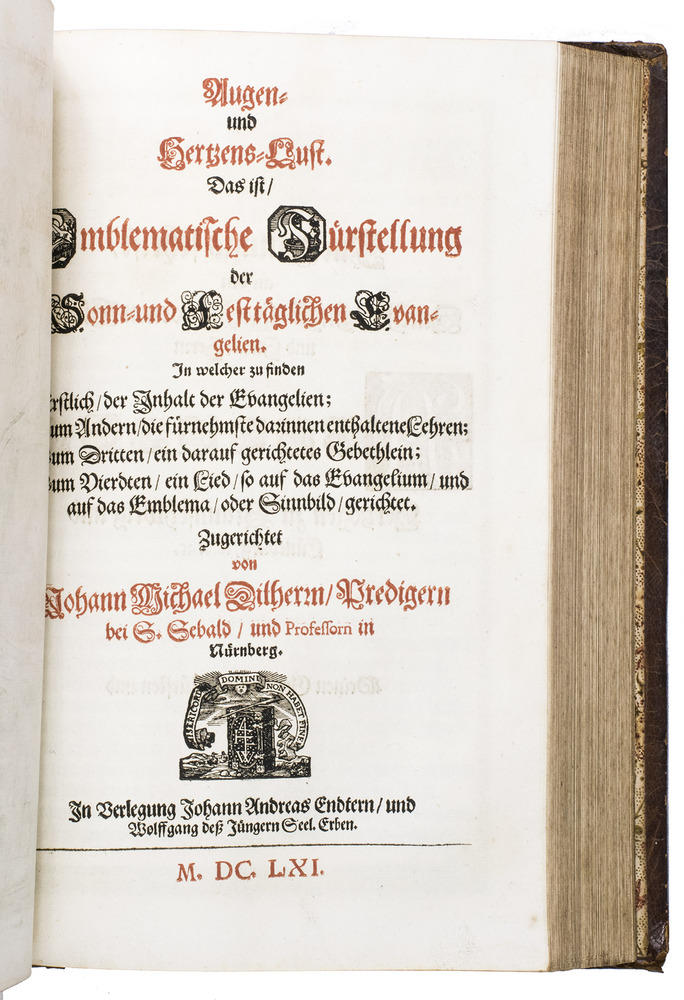 Augen-
und
Hertzens-Lust.
Das ist/
Emblematische Fürstellung
der
Sonn- und Festtäglichen Evan-
gelien.
In welcher zu finden
Erstlich/ der Inhalt der Evangelien;
Zum Andern/ die fürnehmste darinnen enthaltene Lehren;
Zum Dritten/ ein darauf gerichtetes Gebethlein;
Zum Vierdten/ ein Lied/ so auf das Evangelium/ und
auf das Emblema/ oder Sinnbild/ gerichtet.
Zugerichtet
von
Johann Michael Dilherrn/ Predigern
bei S. Sebald/ und Professorn in
Nürnberg.
MISERICORDIA DOMINI NON HABET FINEM
In Verlegung Johann Andreas Endtern/ und
Wolffgang deß Jüngern Seel. Erben.
M. DC. LXI.